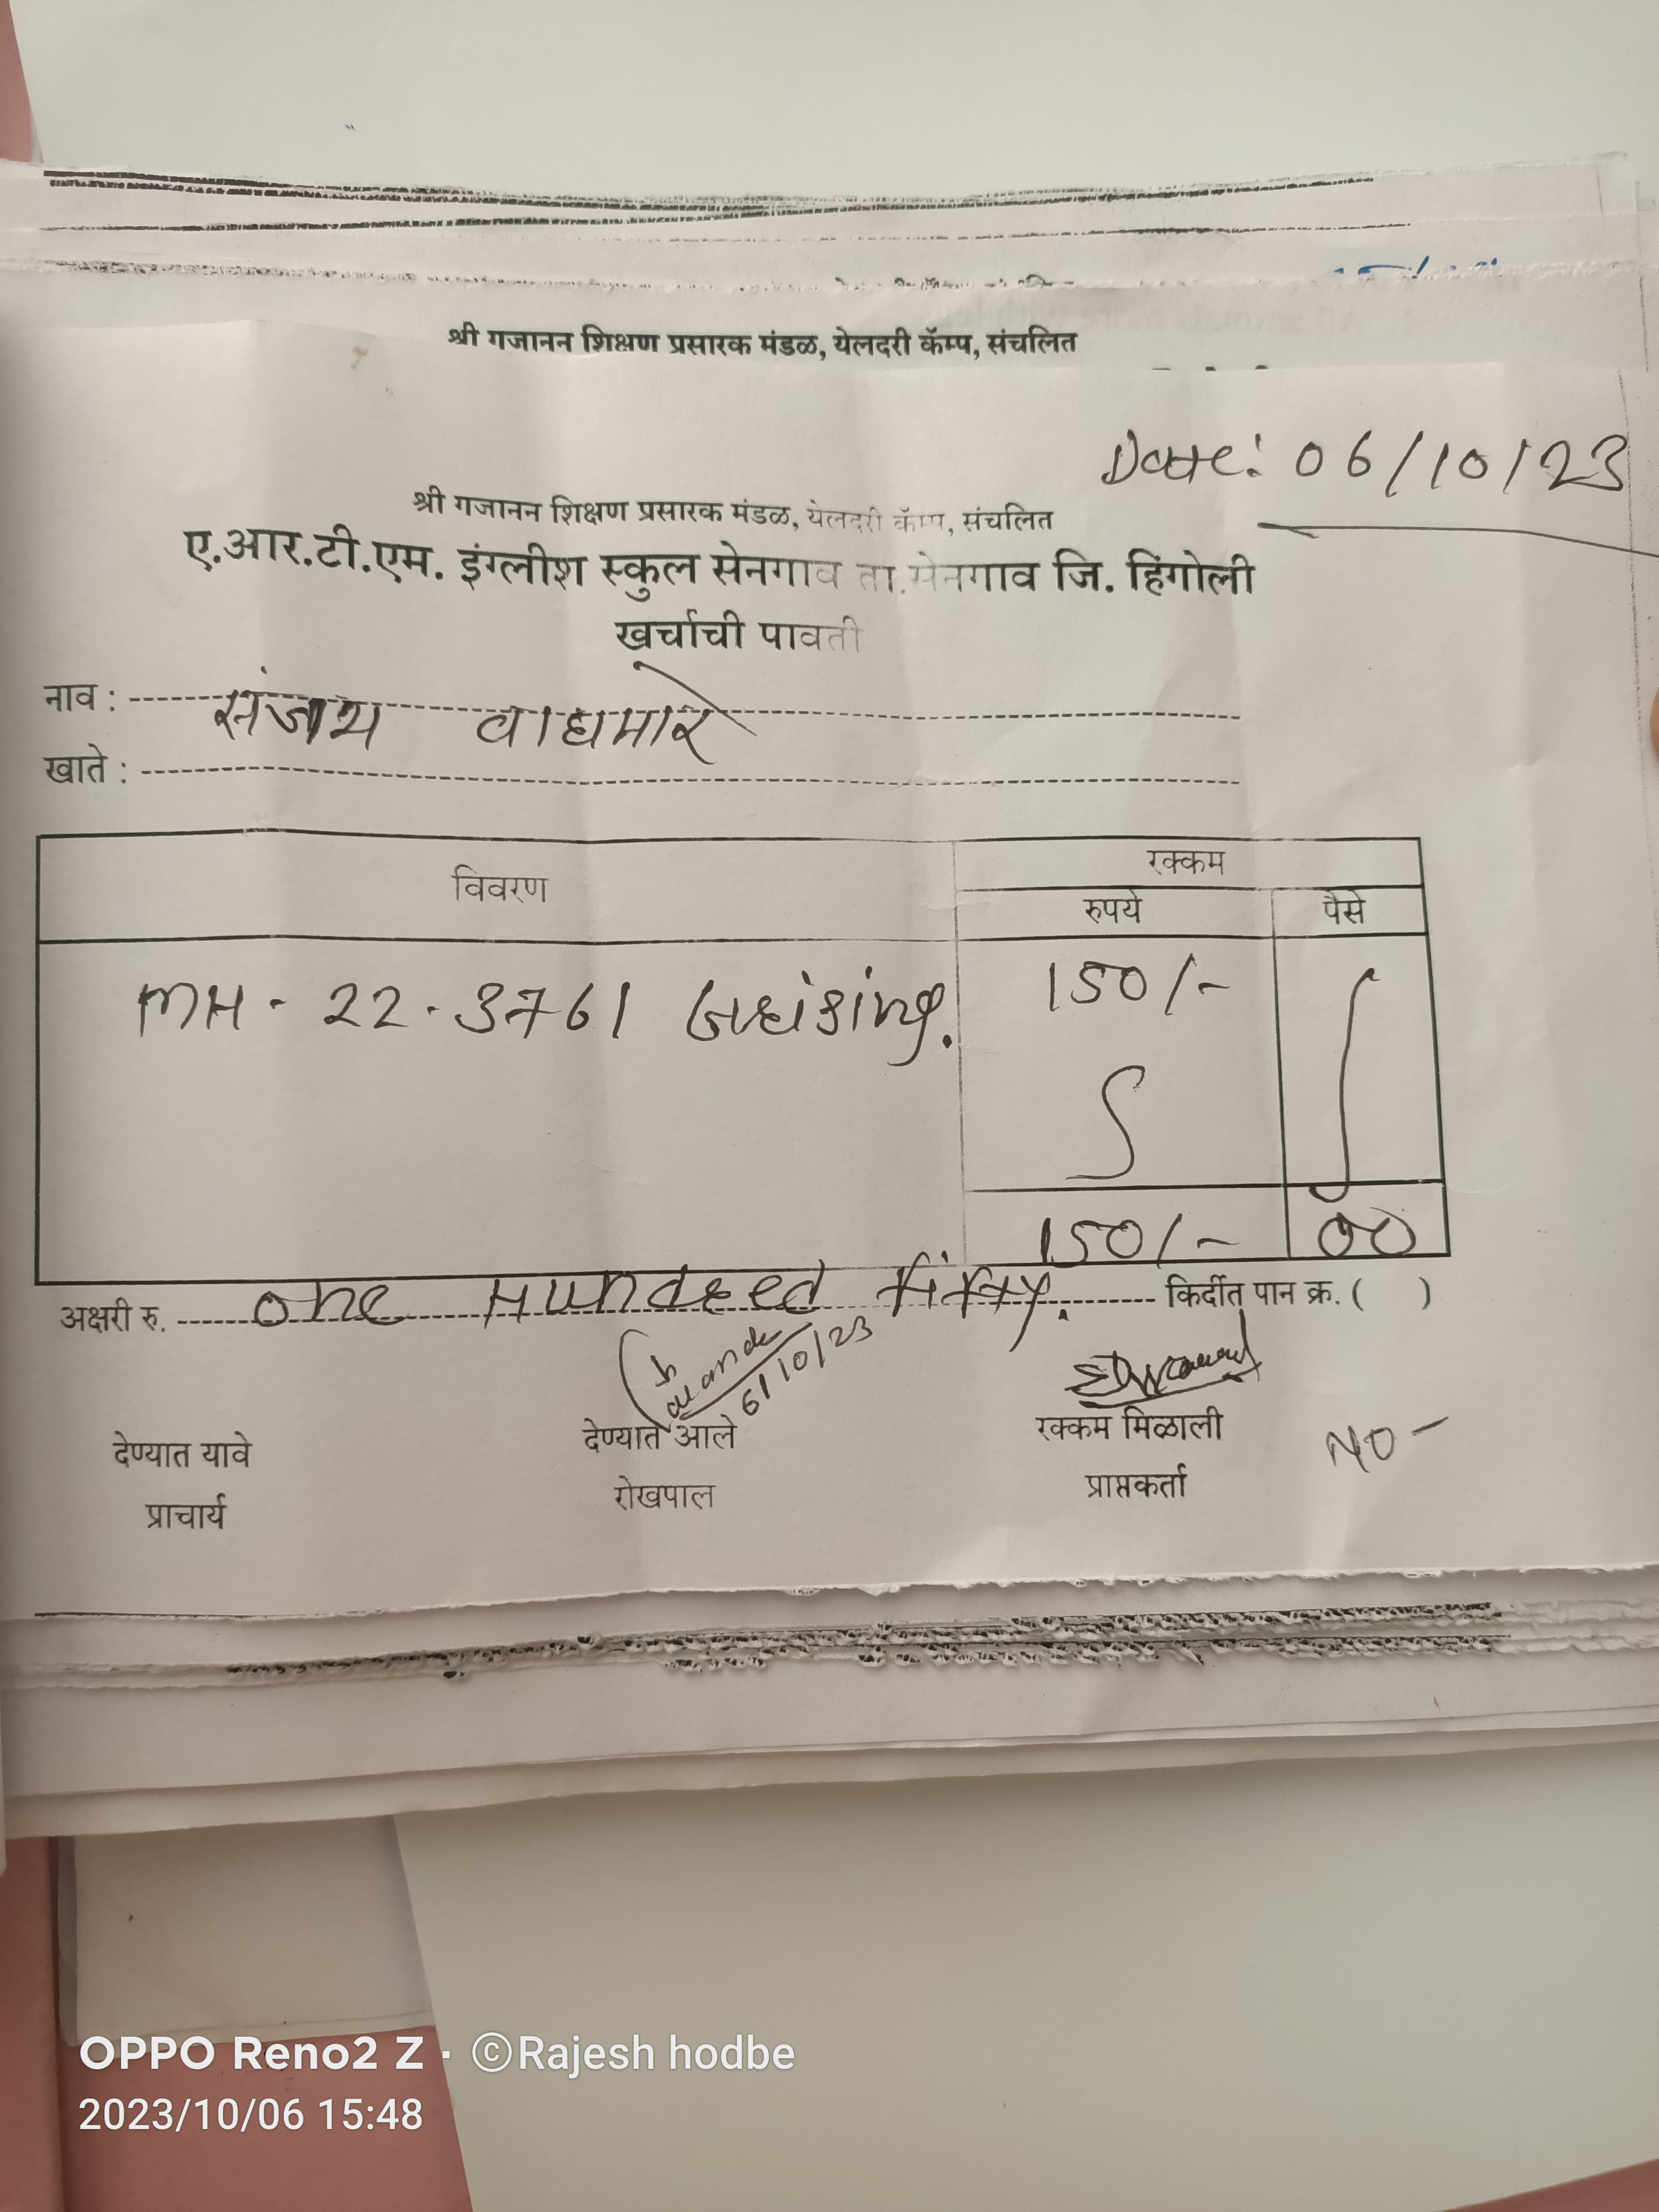 श्री गजानन शिक्षण प्रसारक मंडळ, येलदरी कॅम्प, संचलित
Date: 06/10/23
श्री गजानन शिक्षण प्रसारक मंडळ, येलदरी कॅम्प, संचलित
ए.आर.टी.एम. इंग्लीश स्कुल सेनगाव ता.सेनगाव जि. हिंगोली
खर्चाची पावती
नाव : संजय वाघमारे
खाते :
विवरण रक्कम
रुपये पैसे
MH - 22 - 3761 150/-
150/- 00
अक्षरी रु. One Hundred Fifty. किर्दीत पान क्र. ( )
6/10/23
देण्यात यावे देण्यात आले रक्कम मिळाली NO -
प्राचार्य रोखपाल प्राप्तकर्ता
OPPO Reno2 Z · ©Rajesh hodbe
2023/10/06 15:48